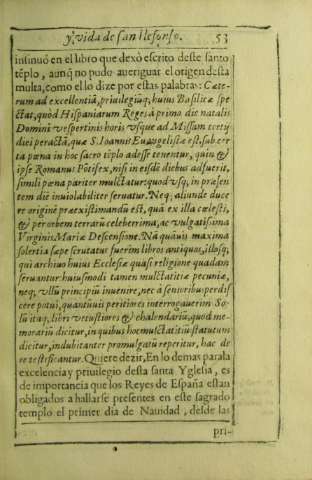 y vida de san Ilefonso. 53
insinuó en el libro que dexò escrito deste santo
tẽplo, aunq̃ no pudo aueriguar el origen desta
multa, como el lo dize por estas palabras: Cæte-
rum ad excellentiã, priuilegiũq; huius Basilicæ spe
ctat, quòd Hispaniarum Reges à primo die natalis
Domini vespertinis horis vsque ad Missam tertij
diei peractã, quæ S. Ioannis Euangelistæ est, sub cer
ta pœna in hoc sacro tẽplo adesse tenentur, quin &
ipse Romanus Põtifex, nisi in eisdẽ diebus adfuerit,
simili pœna pariter mulctatur: quod vsq; in præsen
tem diẽ inuiolabiliter seruatur. Neq; aliunde duce
re originẽ præexistimandũ est, quã ex illa cælesti,
& per orbem terrarũ celeberrima, ac vulgatissima
Virginis Mariæ Descensione. Nã quãuis maxima
solertia sæpe scrutatus fuerim libros antiquos, illosq;
qui archiuo huius Ecclesiæ quasi religione quadam
seruantur huiusmodi tamen mulctatitiæ pecuniæ,
neq; vllũ principiũ inuenire, nec à senioribus perdis
cere potui, quantũuis peritiores interrogauerim. So-
lũ itaq; libri vetustiores & chalendariũ, quod me-
morariũ dicitur, in quibus hoc mulctatitiũ statutum
dicitur, indubitanter promulgatũ reperitur, hac de
re testificantur. Quiere dezir, En lo demas para la
excelencia y priuilegio desta santa Yglesia, es
de importancia que los Reyes de España estan
obligados a hallarse presentes en este sagrado
templo el primer dia de Nauidad, desde las
pri-